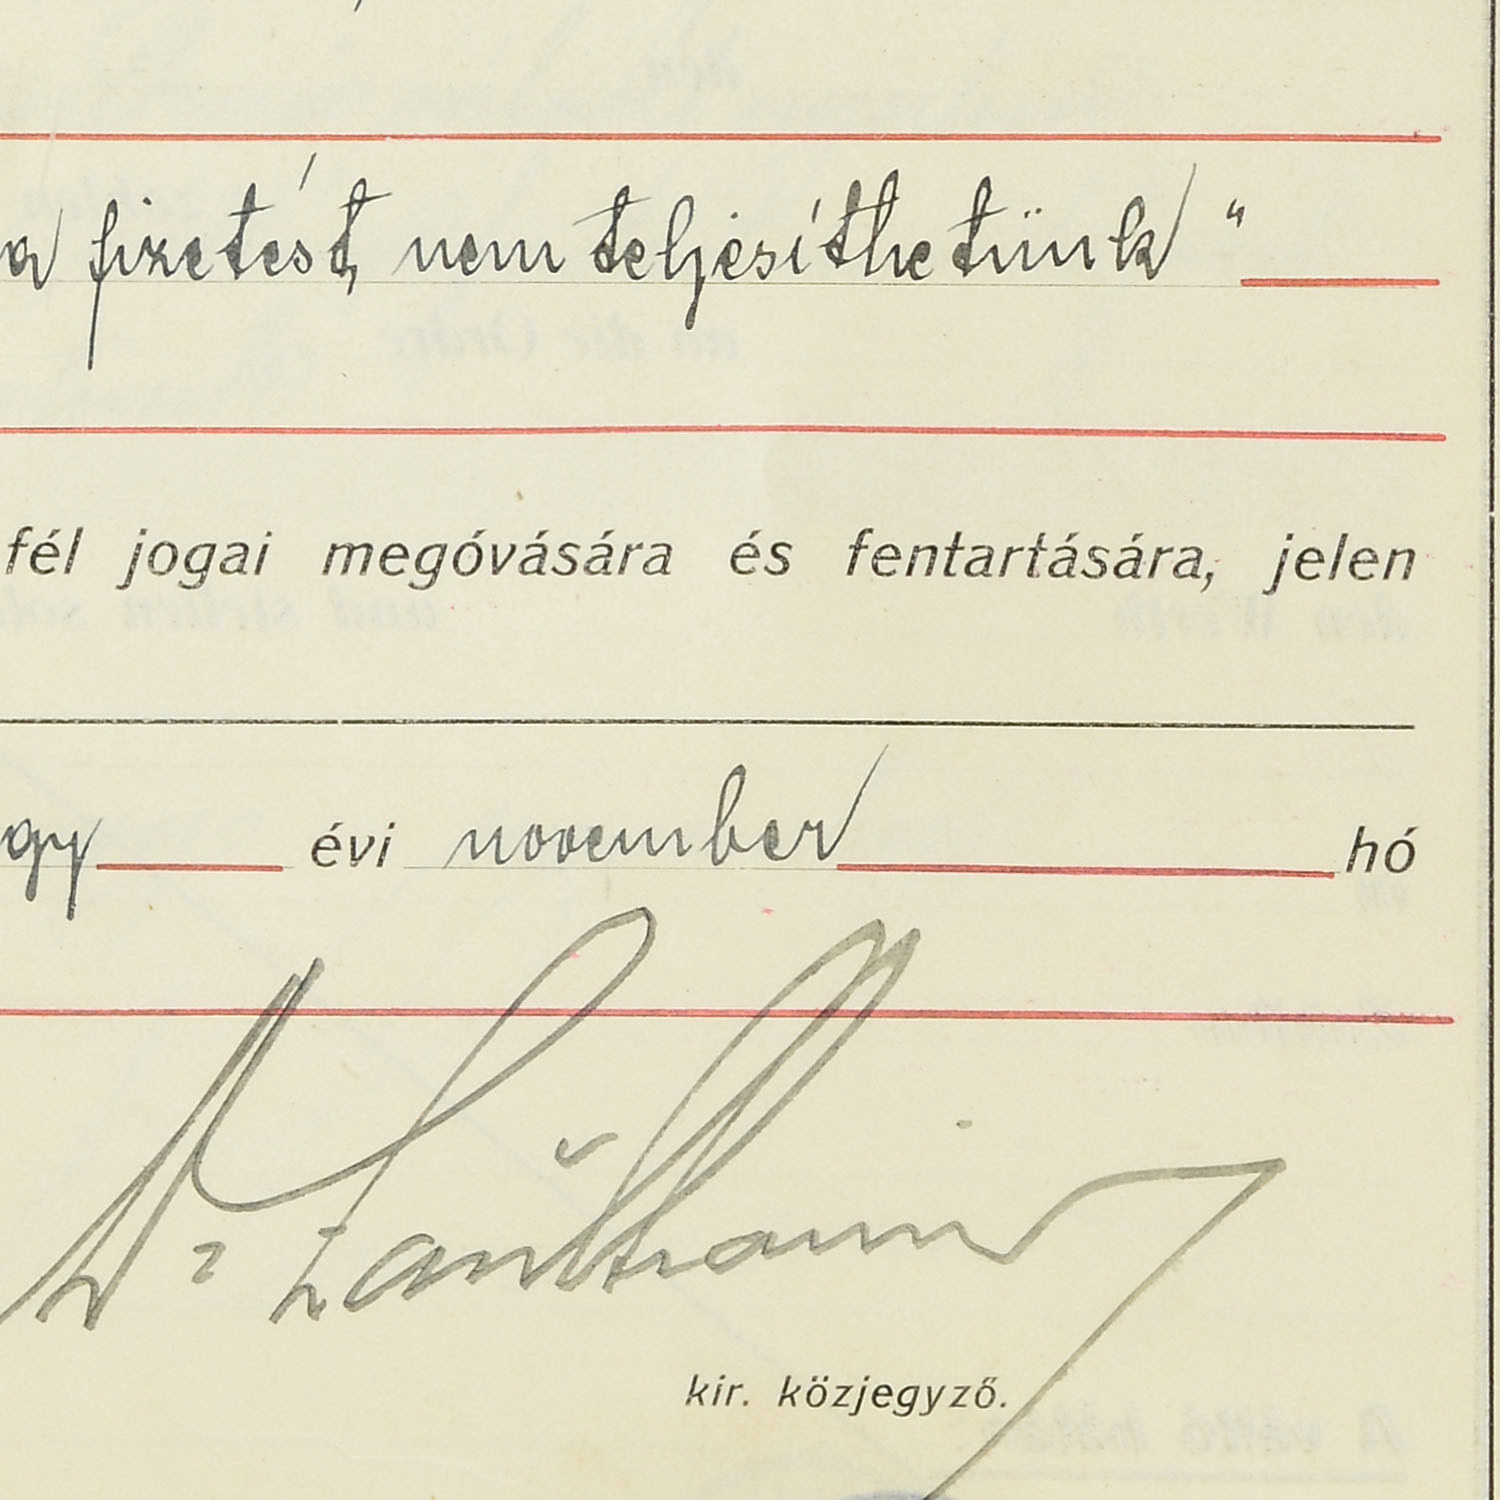 a fizetést, nem teljesíthetünk "
fél jogai megóvására és fentartására, jelen
gy évi november hó
Dr
kir. közjegyző.